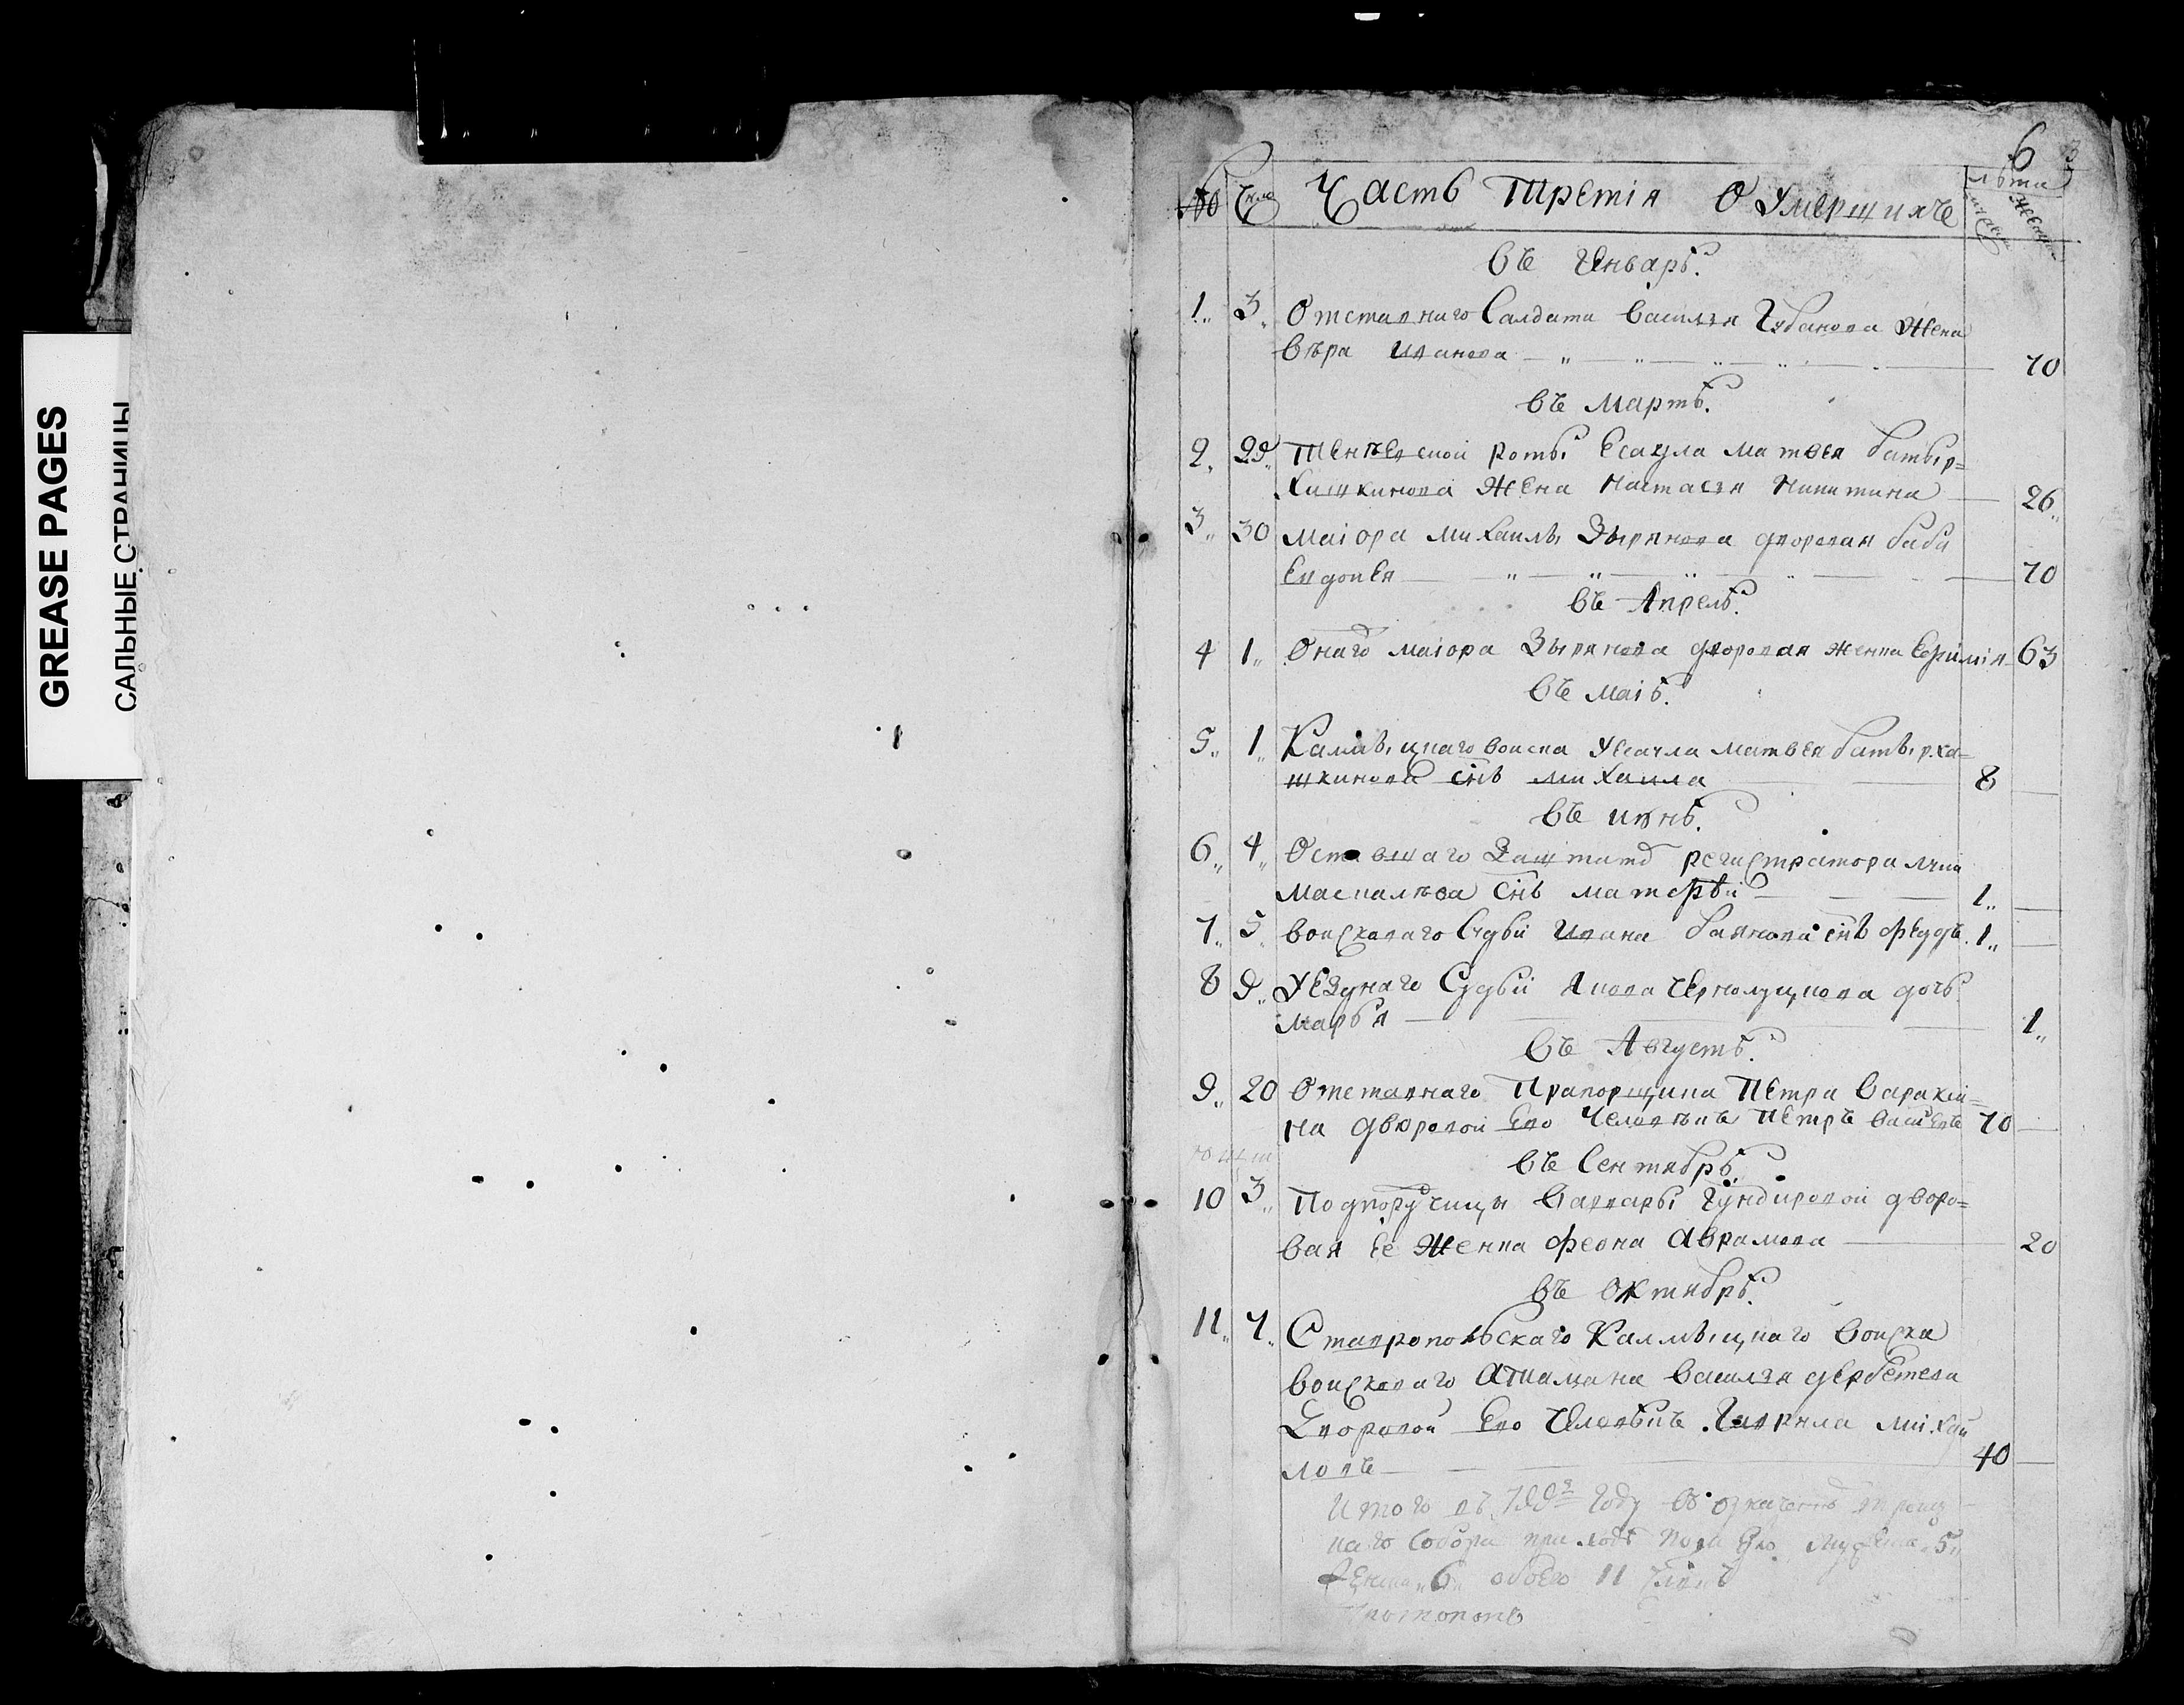 GREASE PAGES
САЛЬНЫЕ СТРАНИЦЫ
6
№ Число Часть Третія О Умерщихъ лѣта
Въ Генварѣ.
1 3 Отставнаго Салдата Василья Губанова Жена
Вѣра Иванова 70
Въ Мартѣ.
2 29 роты Есаула Матвея батыр=
кашкинова Жена Настасья Никитина 26
3 30 маіора михаилы Зырянова дворовая баба
Евдокея 70
Въ Апрелѣ.
4 1 Онаго маіора Зырянова дворовая женка Ефимія 63
Въ маіѣ.
5 1 Калмыцкаго войска Уесаула матвея батырка=
шкинова снъ михаила 8
Въ июнѣ.
6 4 Оставшаго Заштатд регистратора
снъ матфѣй 1
7 5 войсковаго Судьи Ивана баянова снъ Федоръ 1
8 9 Уезднаго Судьи дочь
марья 1
Въ Августѣ.
9 20 Отставнаго Прапорщика Петра Саракіи=
на дворовой Ево Человѣкъ Петръ Васильевъ 70
Въ Сентябрѣ.
10 3 Подпоручицы Варвары Гундировой дворо=
вая Ее Женка феона Аврамова 20
Въ Октябрѣ.
11 7 Ставропольскаго Калмыцкаго Войска
Войсковаго Атамана Василья дербетева
Дворовой Ево Человѣкъ Гаврила михаи
ловъ 40
Итого въ 1799 году въ означенъ троиц
каго Собора приходѣ мужеска 5
Женска 6 обоего 11 Члвкъ
Протопопъ